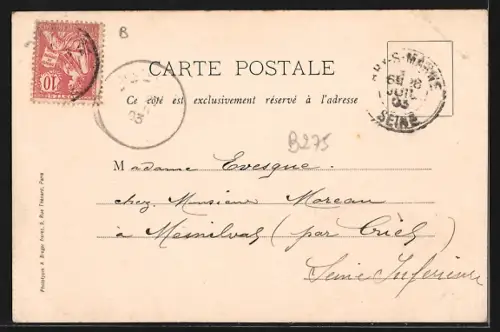 B
10
CARTE POSTALE
Ce côté est exclusivement réservé à l'adresse
03
S-MARNE
JUIL
03
SEINE
B275
Madame Evesque
chez Monsieur Moreau
à Mesnilval (par Criel)
Seine Inférieure
Phototypie A. Breger Frères, 9, Rue Thénard, Paris